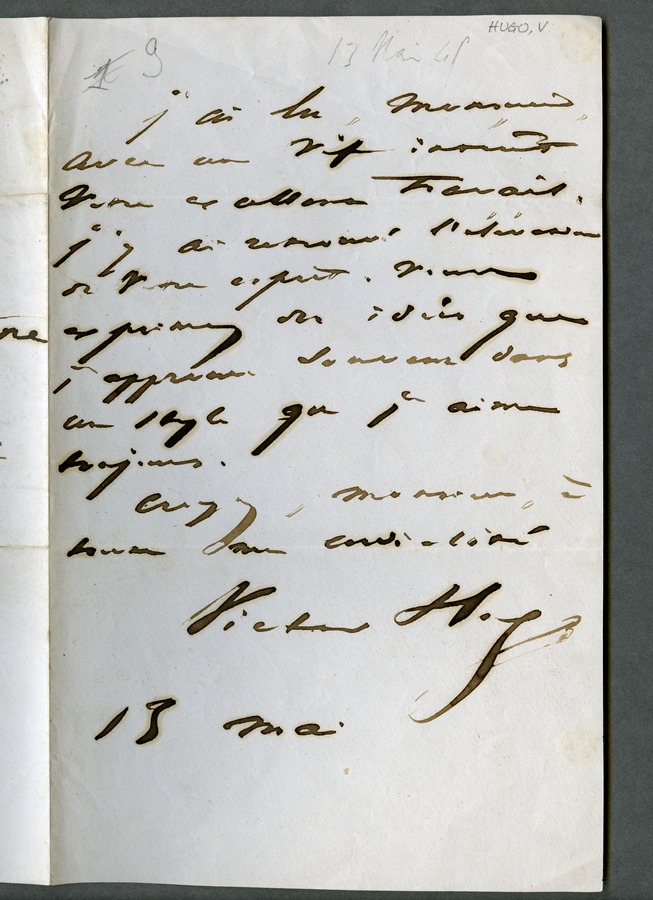 HUGO, V
9 13 Mai 45
j'ai lu, Monsieur,
avec un vif intérêt
votre excellent travail.
j'y ai retrouvé l'élévation
de votre esprit. Vous
exprimez des idées que
j'approuve souvent dans
un style que j'aime
toujours.
Croyez, monsieur, à
toute ma cordialité
Victor Hugo
13 mai